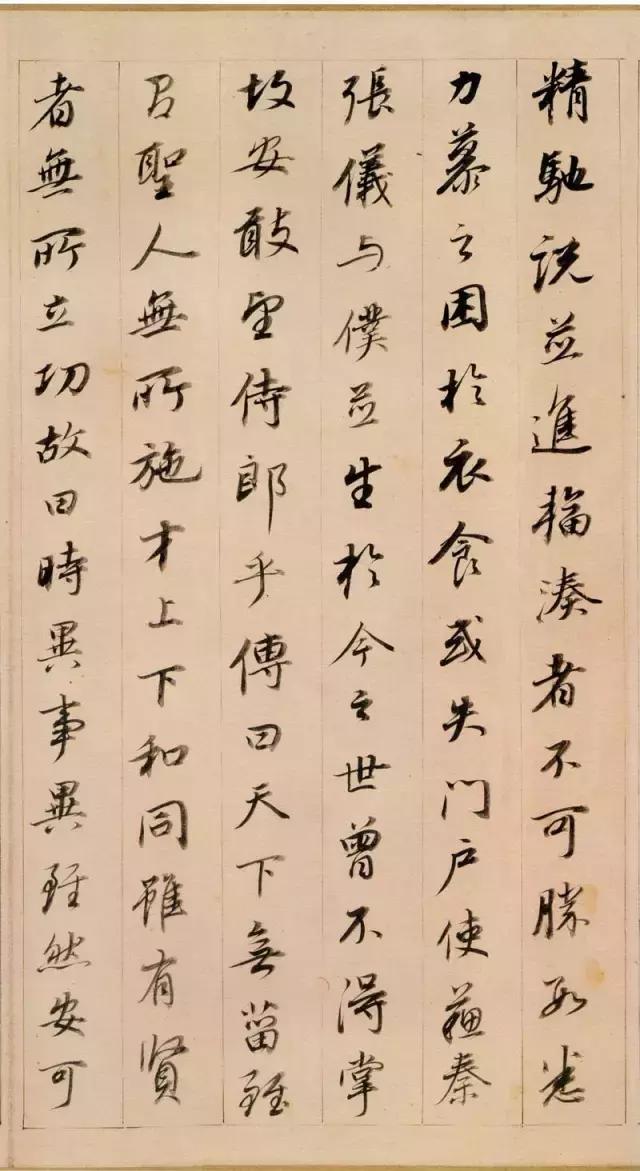 精馳說並進輻湊者不可勝數悉
力慕之困於衣食或失門戶使蘇秦
張儀与僕並生於今之世曾不得掌
故安敢望侍郎乎傳曰天下無菑雖
聖人無所施才上下和同雖有賢
者無所立功故曰時異事異雖然安可